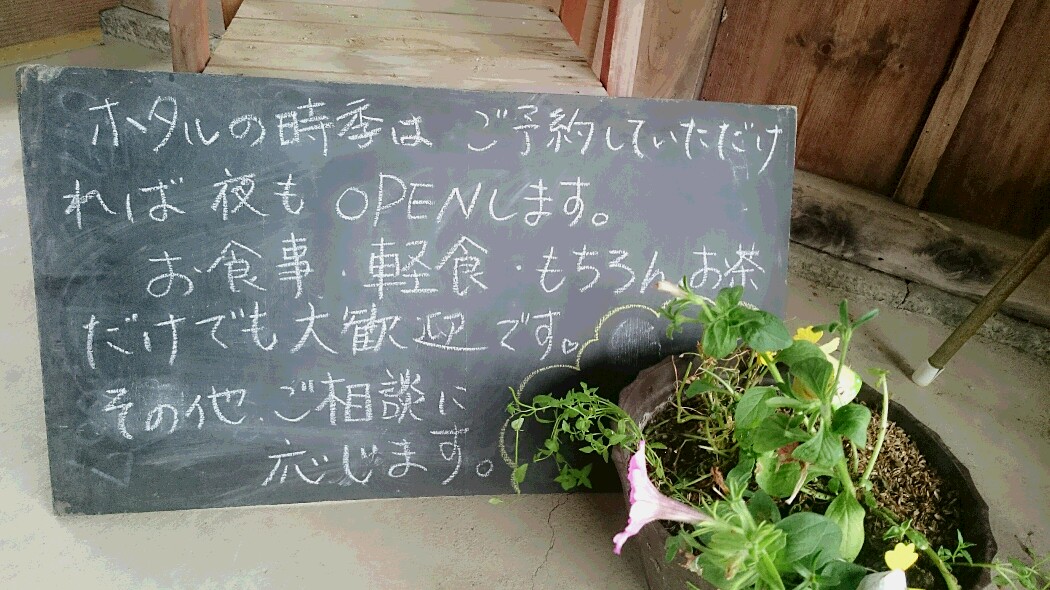 ホタルの時季は ご予約していただけ
れば 夜も OPENします。
お食事・軽食・もちろんお茶
だけでも大歓迎です。
その他、ご相談に
応じます。